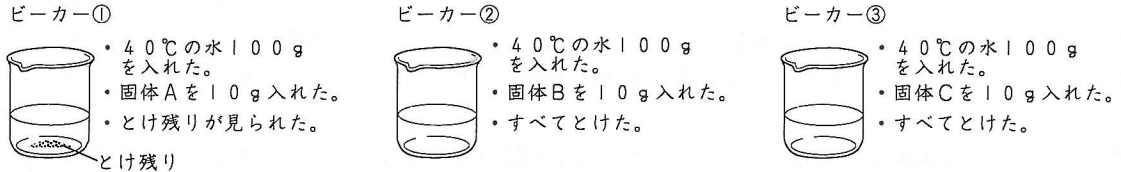 ビーカー①
・４０℃の水１００ｇ
を入れた。
・固体Ａを１０ｇ入れた。
・とけ残りが見られた。
とけ残り
ビーカー②
・４０℃の水１００ｇ
を入れた。
・固体Ｂを１０ｇ入れた。
・すべてとけた。
ビーカー③
・４０℃の水１００ｇ
を入れた。
・固体Ｃを１０ｇ入れた。
・すべてとけた。